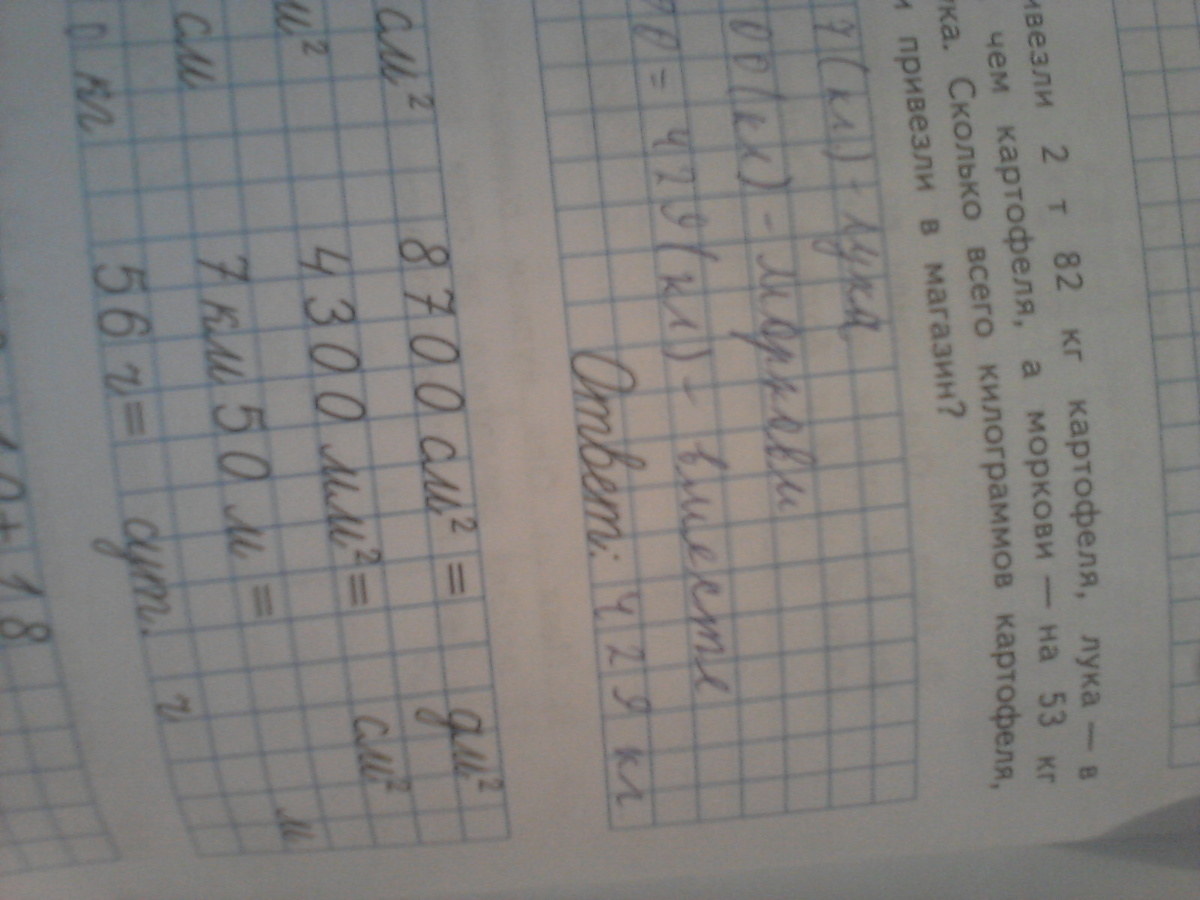 ивезли 2 т 82 кг картофеля, лука — в
чем картофеля, а моркови — на 53 кг
ука. Сколько всего килограммов картофеля,
и привезли в магазин?
7 (кг) - лука
00 (кг) - моркови
= 429 (кг) - вместе
Ответ: 429 кг
см² 8700 см² = дм²
м² 4300 мм² = см²
см 7 км 50 м = м
0 кг 56 ч = сут. ч
+ 18